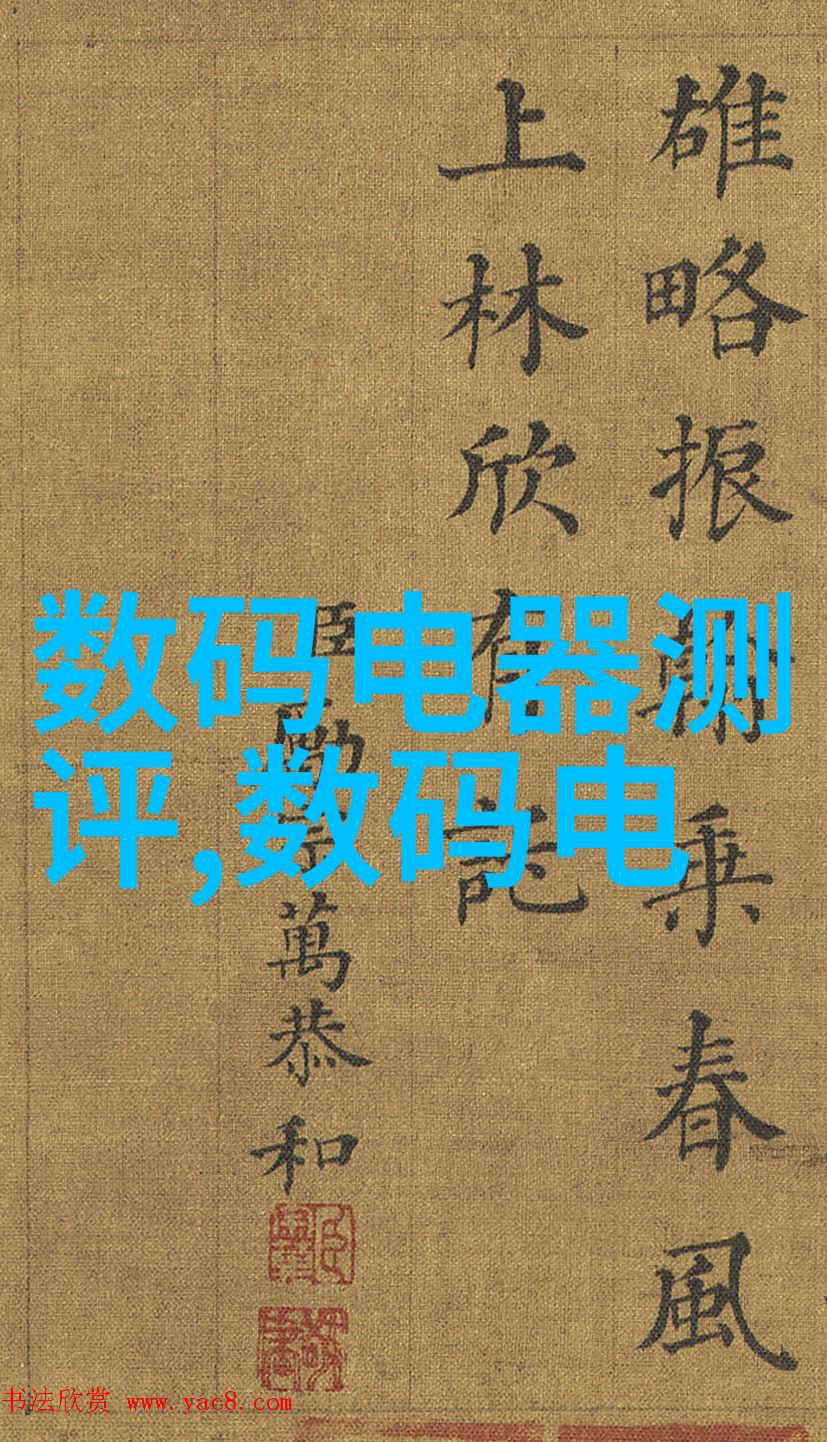 雄略振乘春風
上林欣有託
臣萬恭和
数码电器测
评,数码电
书法欣赏 www.yac8.com